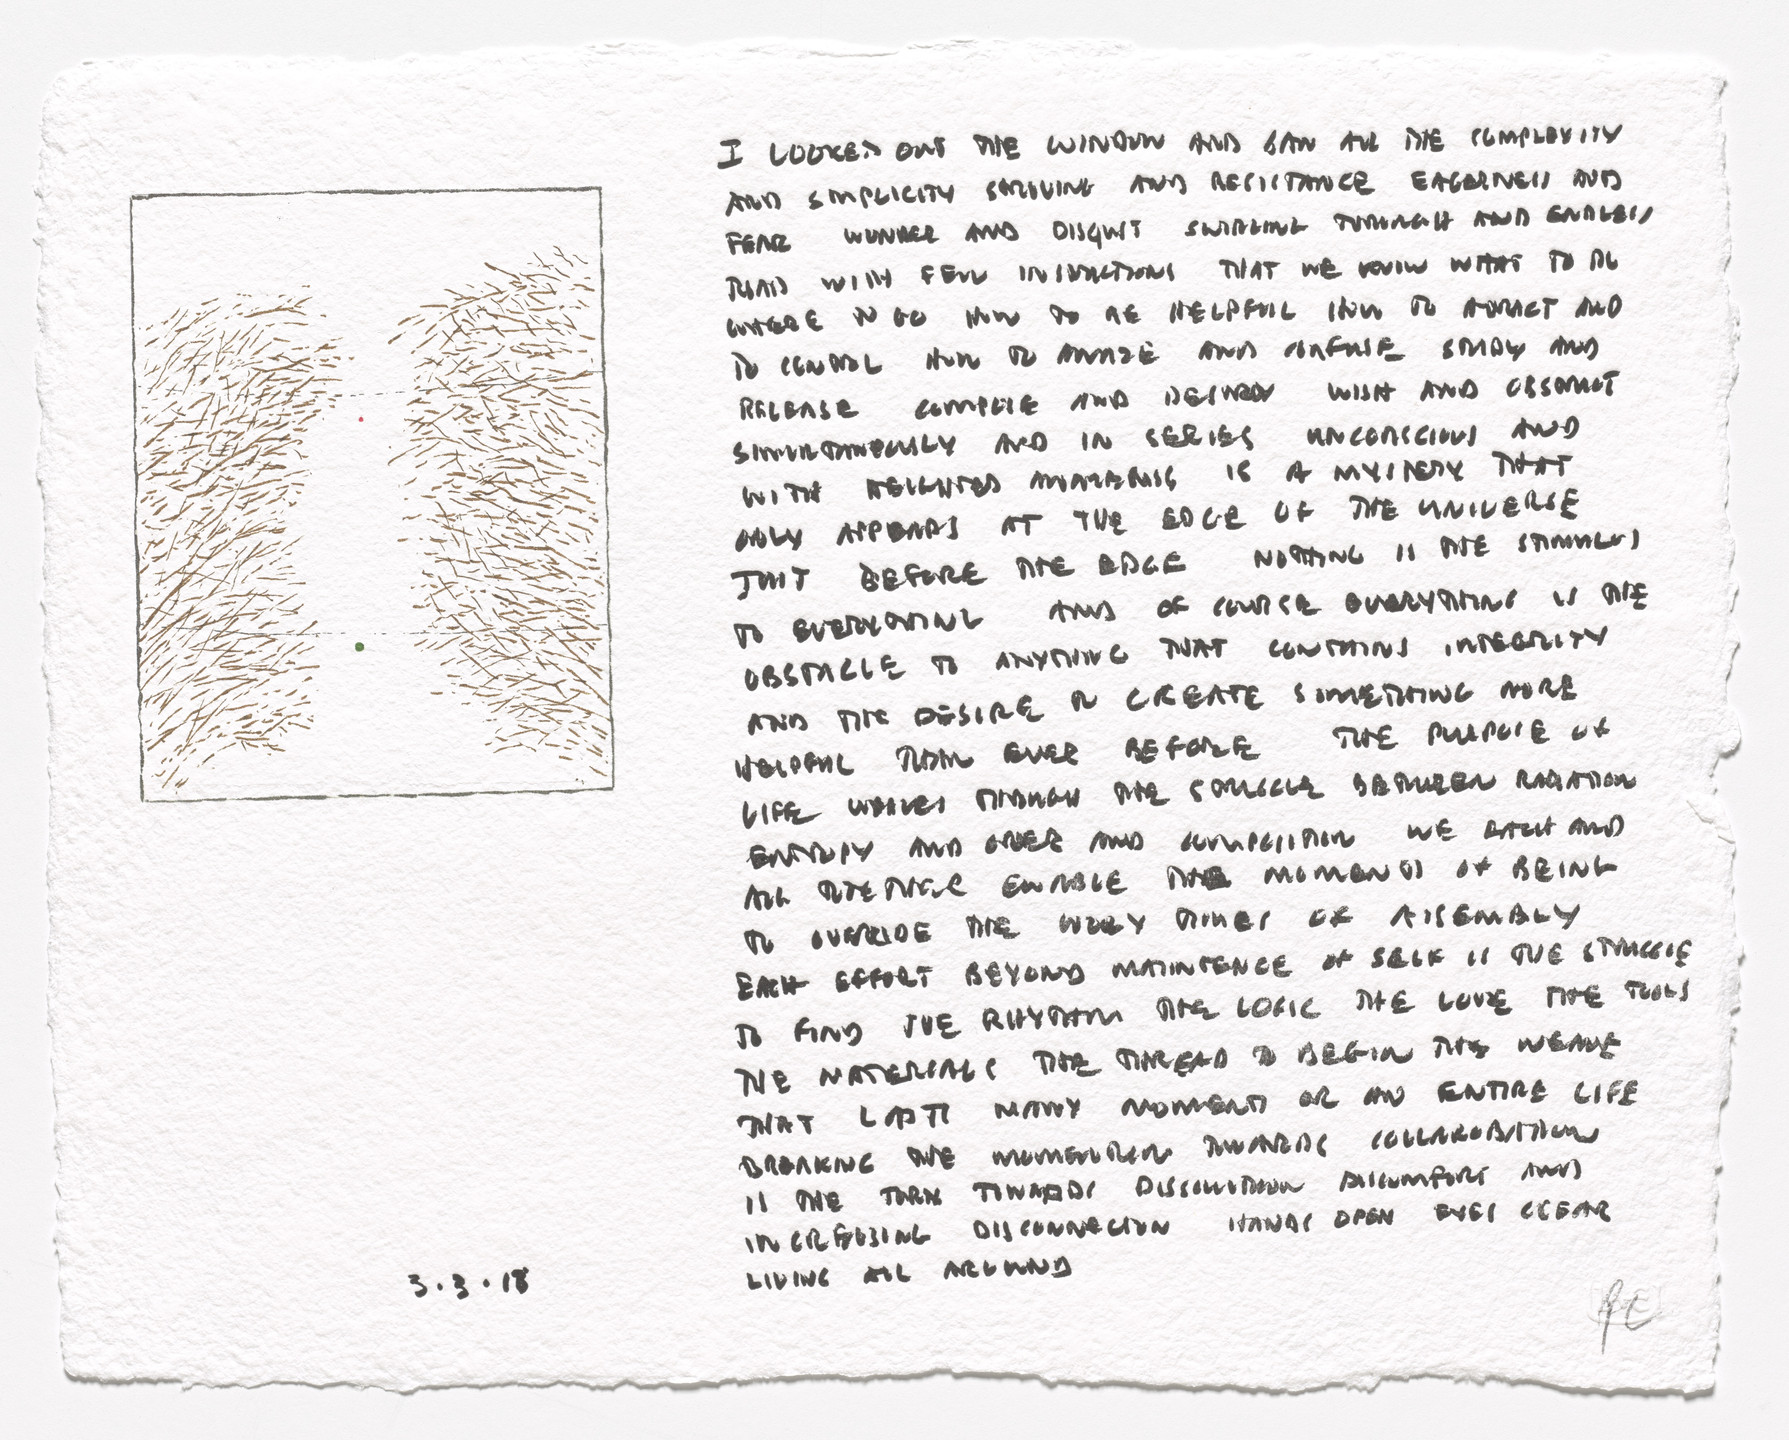 I LOOKED OUT THE WINDOW AND SAW ALL THE COMPLEXITY
AND SIMPLICITY STRIVING AND RESISTANCE EAGERNESS AND
FEAR WONDER AND DISGUST SWIRLING THROUGH AND ENDLESS
ROAD WITH FEW INSTRUCTIONS THAT WE KNOW WHAT TO DO
WHERE TO GO HOW TO BE HELPFUL HOW TO ATTRACT AND
TO CONTROL HOW TO AMAZE AND CONFUSE STUDY AND
RELEASE COMPOSE AND DESTROY WISH AND OBSTRUCT
SIMULTANEOUSLY AND IN SERIES UNCONSCIOUS AND
WITH HEIGHTED AWARENESS IS A MYSTERY THAT
ONLY APPEARS AT THE EDGE OF THE UNIVERSE
JUST BEFORE THE EDGE NOTHING IS THE STIMULUS
TO EVERYTHING AND OF COURSE EVERYTHING IS THE
OBSTACLE TO ANYTHING THAT CONTAINS INTEGRITY
AND THE DESIRE TO CREATE SOMETHING MORE
HELPFUL THAN EVER BEFORE THE PURPOSE OF
LIFE WEAVES THROUGH THE STRUGGLE BETWEEN RADIATION
ENTROPY AND ORDER AND COMPOSITION WE EACH AND
ALL TOGETHER ENABLE THE MOMENTS OF BEING
TO OVERRIDE THE WORRY TIMES OF ASSEMBLY
EACH EFFORT BEYOND MAINTENCE OF SELF IS THE STRUGGLE
TO FIND THE RHYTHM THE LOGIC THE LOVE THE TOOLS
THE MATERIALS THE THREAD TO BEGIN THE WEAVE
THAT LASTS MANY MOMENTS OR AN ENTIRE LIFE
BREAKING THE MOMENTUM TOWARDS COLLABORATION
IS THE TURN TOWARDS DISSOLUTION DISCOMFORT AND
INCREASING DISCONNECTION HANDS OPEN EYES CLEAR
LIVING ALL AROUND
3.3.18